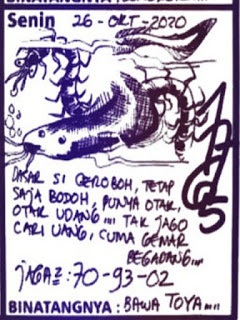 Senin 26-OKT-2020
DASAR SI CEROBOH, TETAP
SAJA BODOH, PUNYA OTAK,
OTAK UDANG.... TAK JAGO
CARI UANG, CUMA GEMAR
BEGADANG....
JAGA2: 70-93-02
BINATANGNYA: BAWA TOYA.....